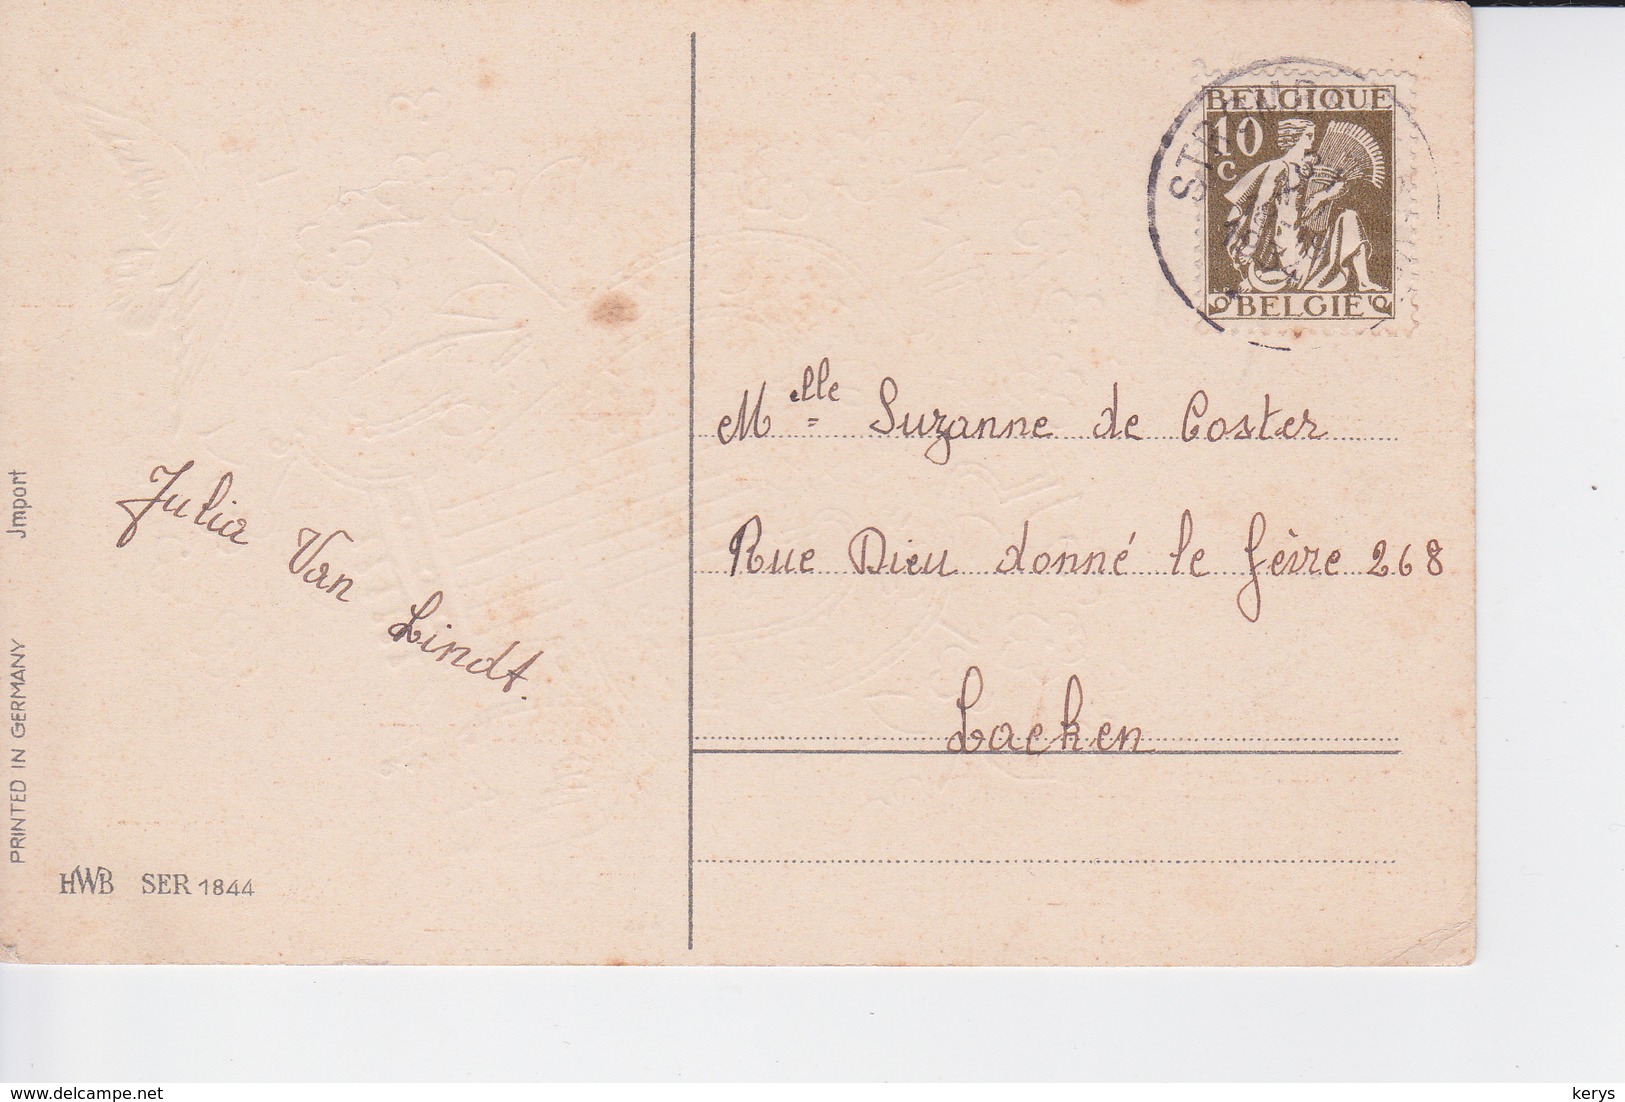 BELGIQUE
10
C
BELGIE
Mlle Suzanne de Coster
Rue Dieu donné le fèvre 268
Laeken
Julia Van Lindt.
PRINTED IN GERMANY Jmport
HWB SER 1844
www.delcampe.net
kerys